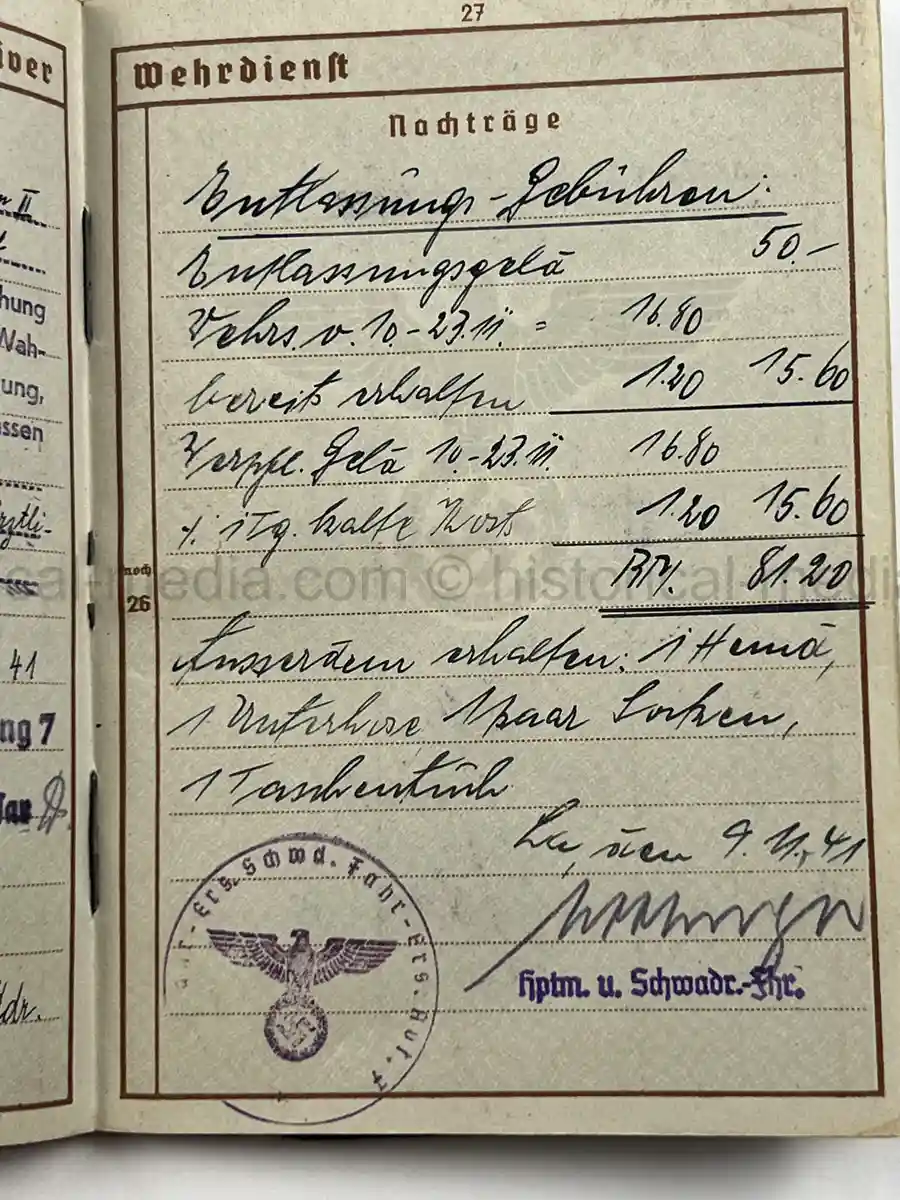 27
iver
Wehrdienst
Nachträge
Entlassungs-Gebühren:
Entlassungsgeld 50.-
Wehrs. v. 10.-23.11. = 16.80
bereits erhalten 1.20 15.60
Verpfl. Geld 10.-23.11. 16.80
./. 1 Tg. kalte Kost 1.20 15.60
RM. 81.20
noch
26
Ausserdem erhalten: 1 Hemd,
1 Unterhose, 1 Paar Socken,
1 Taschentuch
den 9.11.41
Hptm. u. Schwadr.-Fhr.
Ers. Schwd. Fahr-Ers. Abt. 7
II
hung
Wah-
ung,
ssen
41
ng 7
dr.
cal-media.com © historical-media